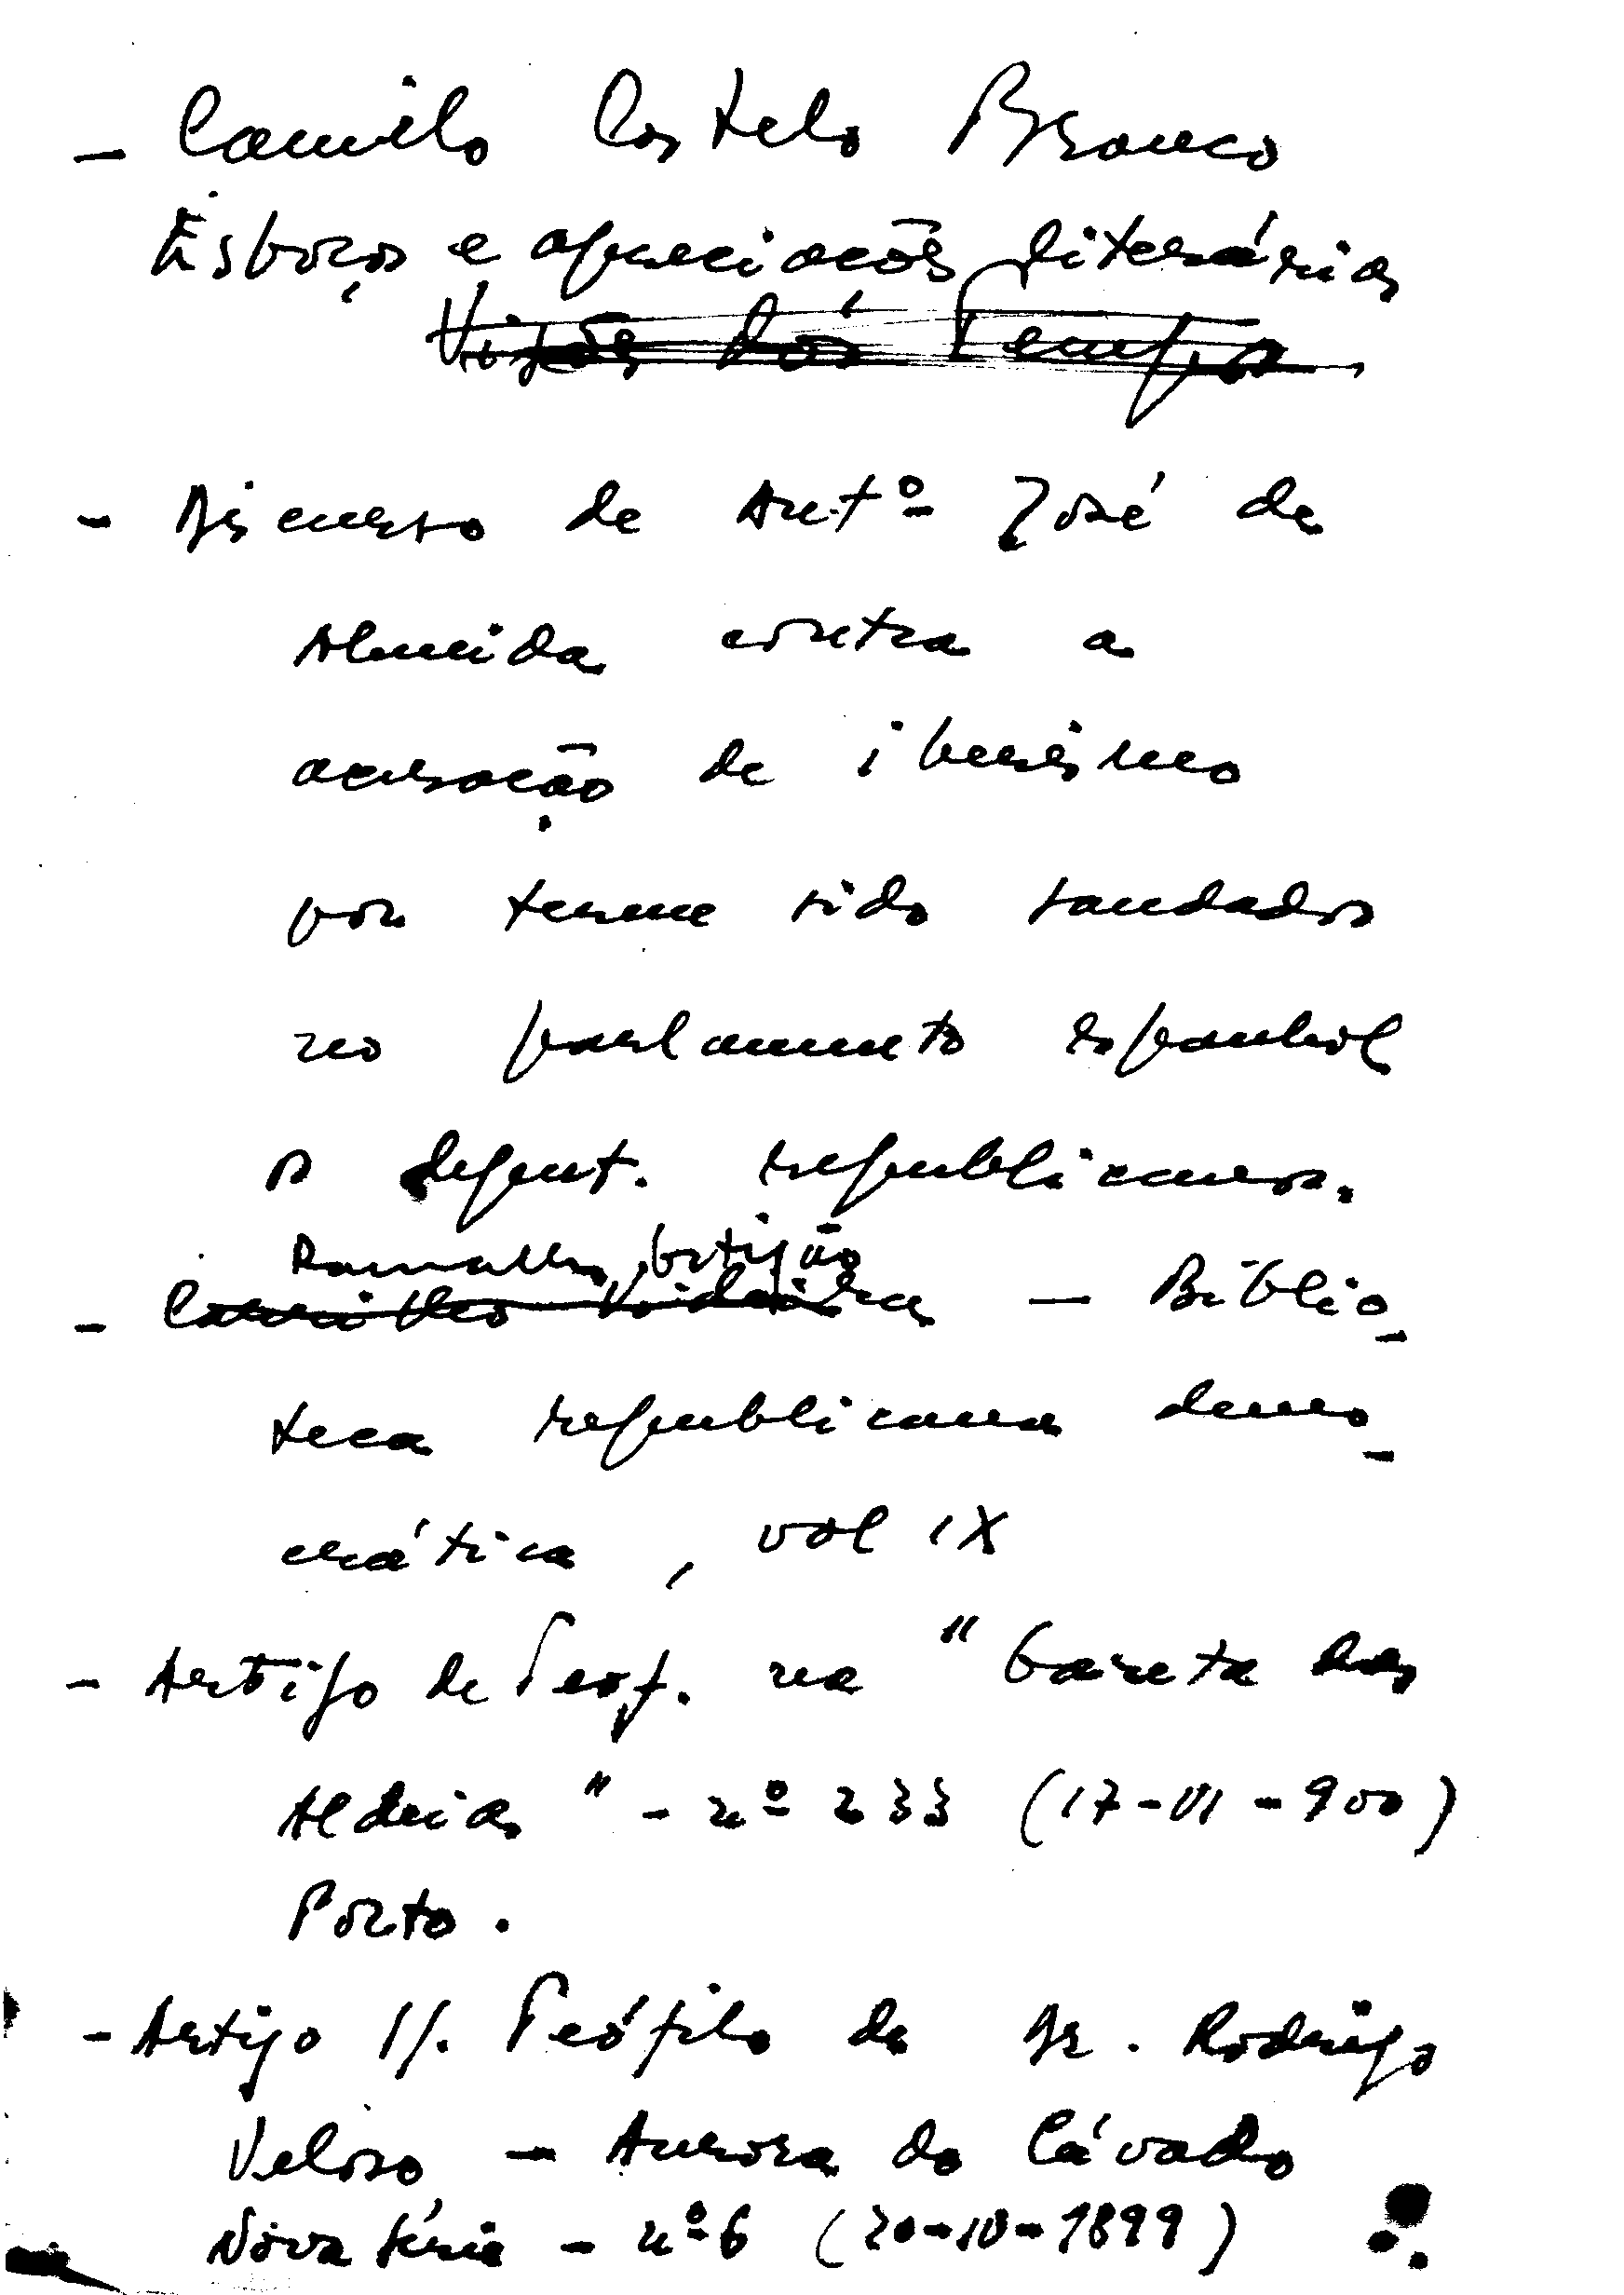 - Camilo Castelo Branco
Esboços e apreciações literárias
Visões dos Tempos
- Discurso de Antº José de
Almeida contra a
acusação de iberismo
por terem sido saudados
no parlamento espanhol
os deput. republicanos.
Ramalho Ortigão
- — Biblio-
teca republicana demo-
crática, vol IX
- Artigo de Teof. na "Gazeta das
Aldeias" - nº 233 (17-VI-900)
Porto.
- Artigo s/. Teófilo de Dr. Rodrigo
Veloso - Aurora do Cávado
Nova série - nº 6 (20-10-1899)